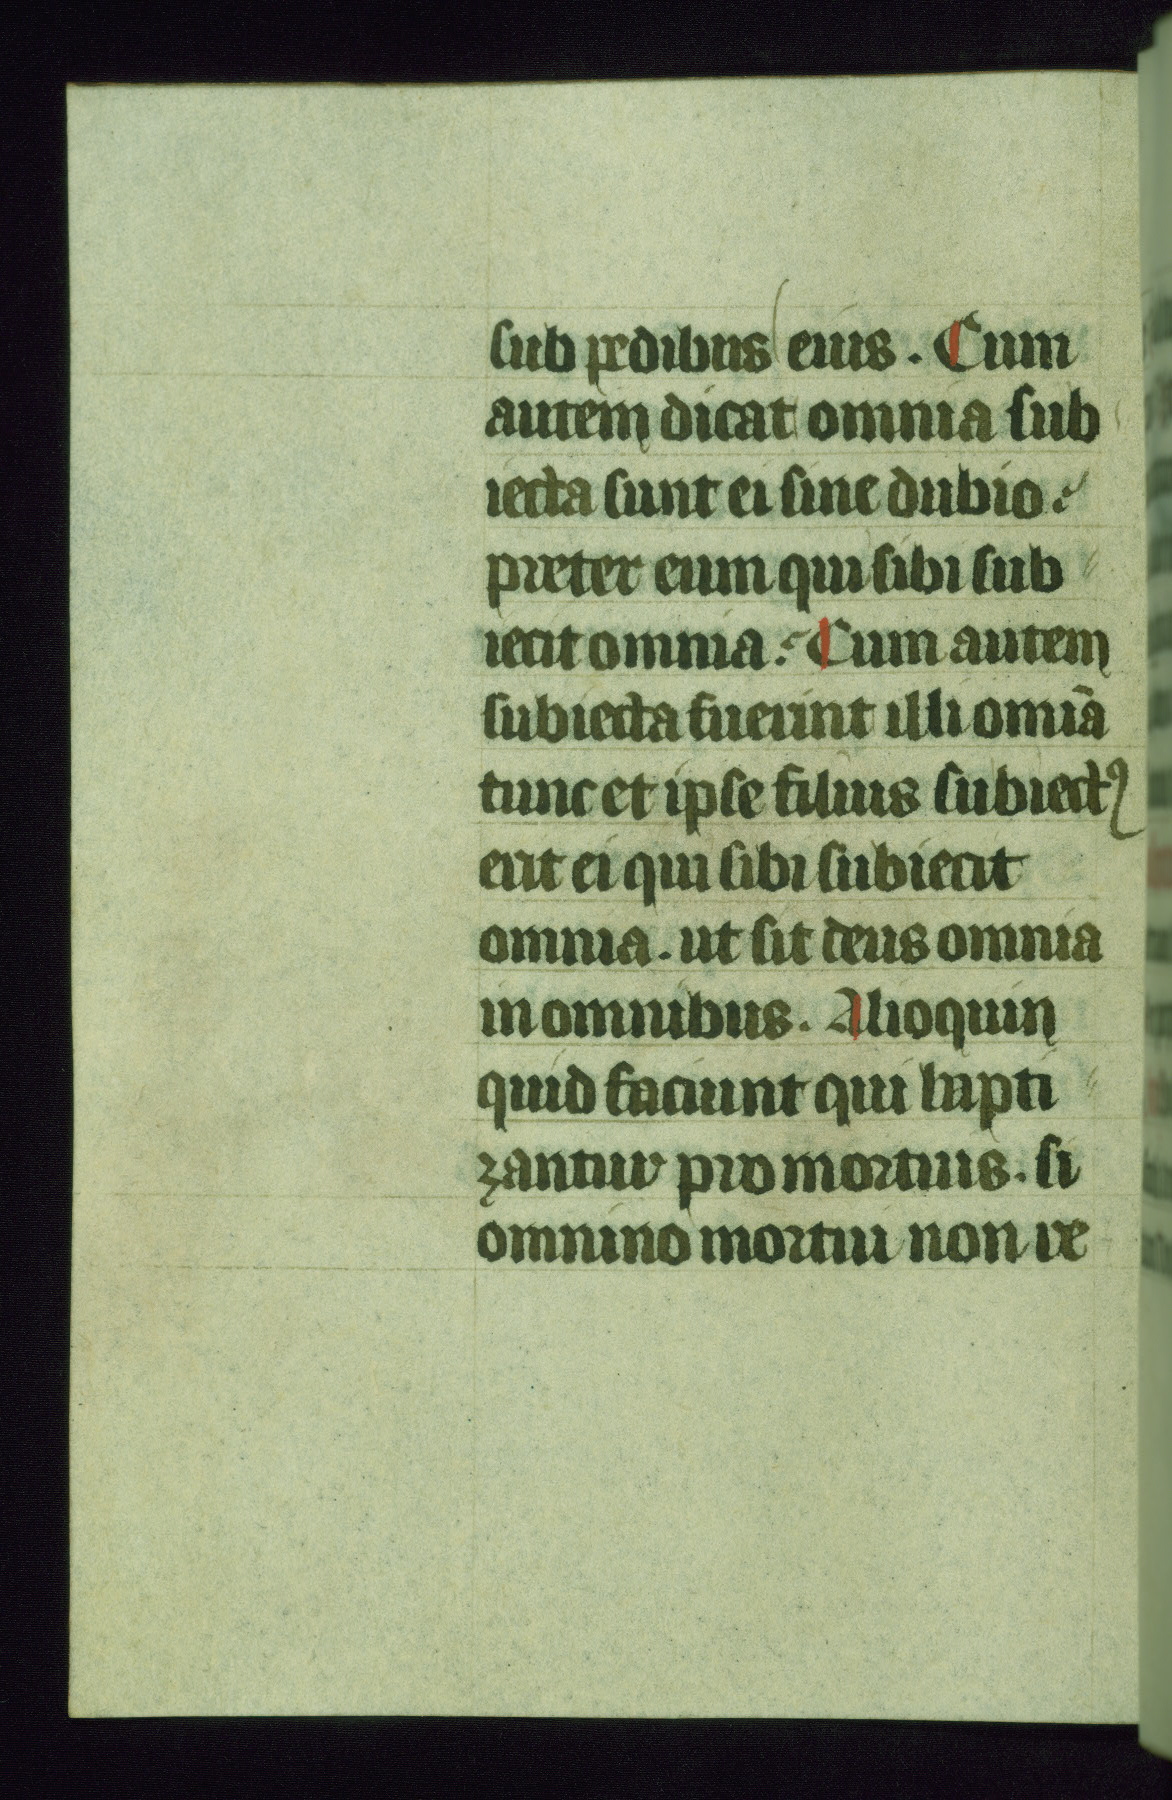 sub pedibus eius. Cum
autem dicat omnia sub
iecta sunt ei sine dubio:
preter eum qui sibi sub
iecit omnia: Cum autem
subiecta fuerint illi omīa
tunc et ipse filius subiectꝰ
erit ei qui sibi subiecit
omnia. ut sit deus omnia
in omnibus. Alioquin
quid faciunt qui bapti
zantur pro mortuis. si
omnino mortui non re